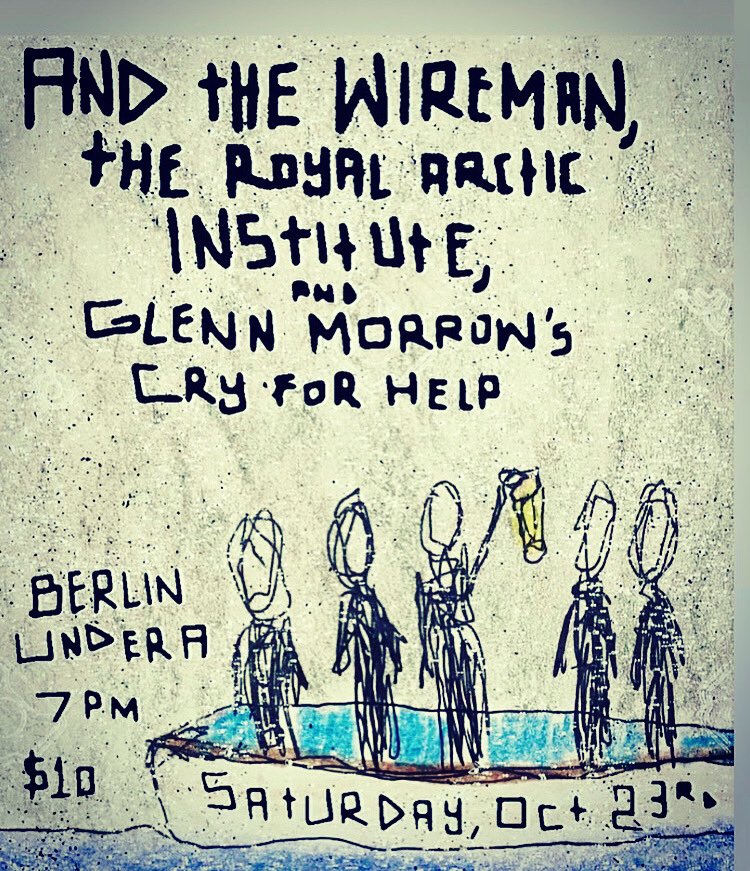 AND tHE WIREMAN,
tHE ROYAL ARCtIC
INStItUtE,
AND
GLENN MORROW'S
CRY FOR HELP
BERLIN
UNDER A
7 PM
$10
SAtURDAY, Oct 23RD